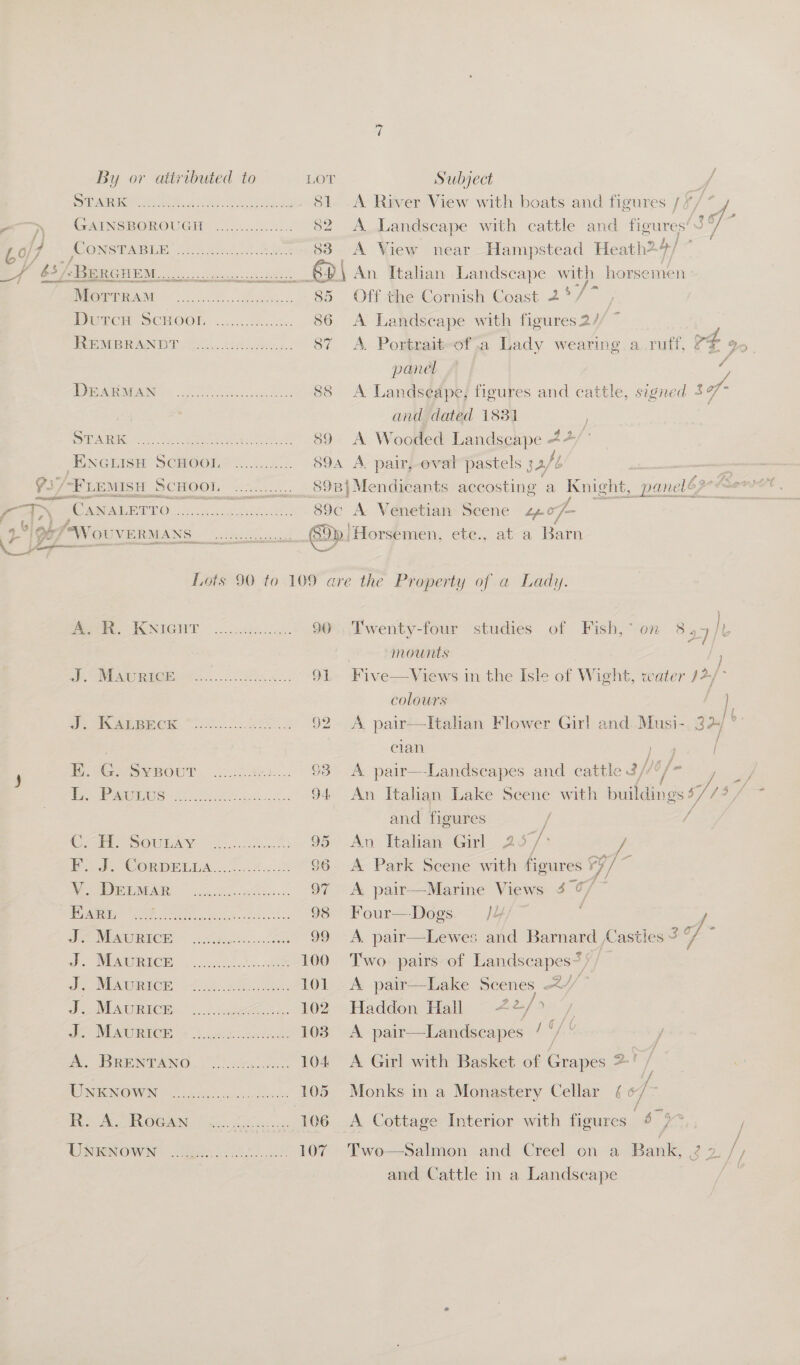 7
By or attributed to LOT Subject
STARK 81 A River View with boats and figures
GAINSBOROUGH 82 A Landscape with cattle and figures
60/- CONSTABLE 83 A View near Hampstead Heath 24/-
65/- BERGHEM 84 An Italian Landscape with horsemen
MOTTRAM 85 Off the Cornish Coast 25/-
DUTCH SCHOOL 86 A Landscape with figures 21/-
REMBRANDT 87 A Portrait of a Lady wearing a ruff,
panel
DEARMAN 88 A Landscape, figures and cattle, signed 30/-
and dated 1831
STARK 89 A Wooded Landscape 22/-
ENGLISH SCHOOL 89A A pair, oval pastels 32/6
FLEMISH SCHOOL 89B Mendicants accosting a Knight, panel
CANALETTO 89C A Venetian Scene
WOUVERMANS 89D Horsemen, etc., at a Barn
Lots 90 to 109 are the Property of a Lady.
A. R. KNIGHT 90 Twenty-four studies of Fish, on
mounts
J. MAURICE 91 Five—Views in the Isle of Wight, water 12/-
colours
J. KALBECK 92 A pair—Italian Flower Girl and Musi- 32/6
cian
E. G. SYBOUT 93 A pair—Landscapes and cattle
L. PAULUS 94 An Italian Lake Scene with buildings
and figures
C. H. SOULAY 95 An Italian Girl 25/-
F. J. CORDELLA 96 A Park Scene with figures
V. DELMAR 97 A pair—Marine Views
EARL 98 Four—Dogs 14/-
J. MAURICE 99 A pair—Lewes and Barnard Castles 30/-
J. MAURICE 100 Two pairs of Landscapes
J. MAURICE 101 A pair—Lake Scenes
J. MAURICE 102 Haddon Hall 22/-
J. MAURICE 103 A pair—Landscapes
A. BRENTANO 104 A Girl with Basket of Grapes
UNKNOWN 105 Monks in a Monastery Cellar 60/-
R. A. ROGAN 106 A Cottage Interior with figures
UNKNOWN 107 Two—Salmon and Creel on a Bank,
and Cattle in a Landscape